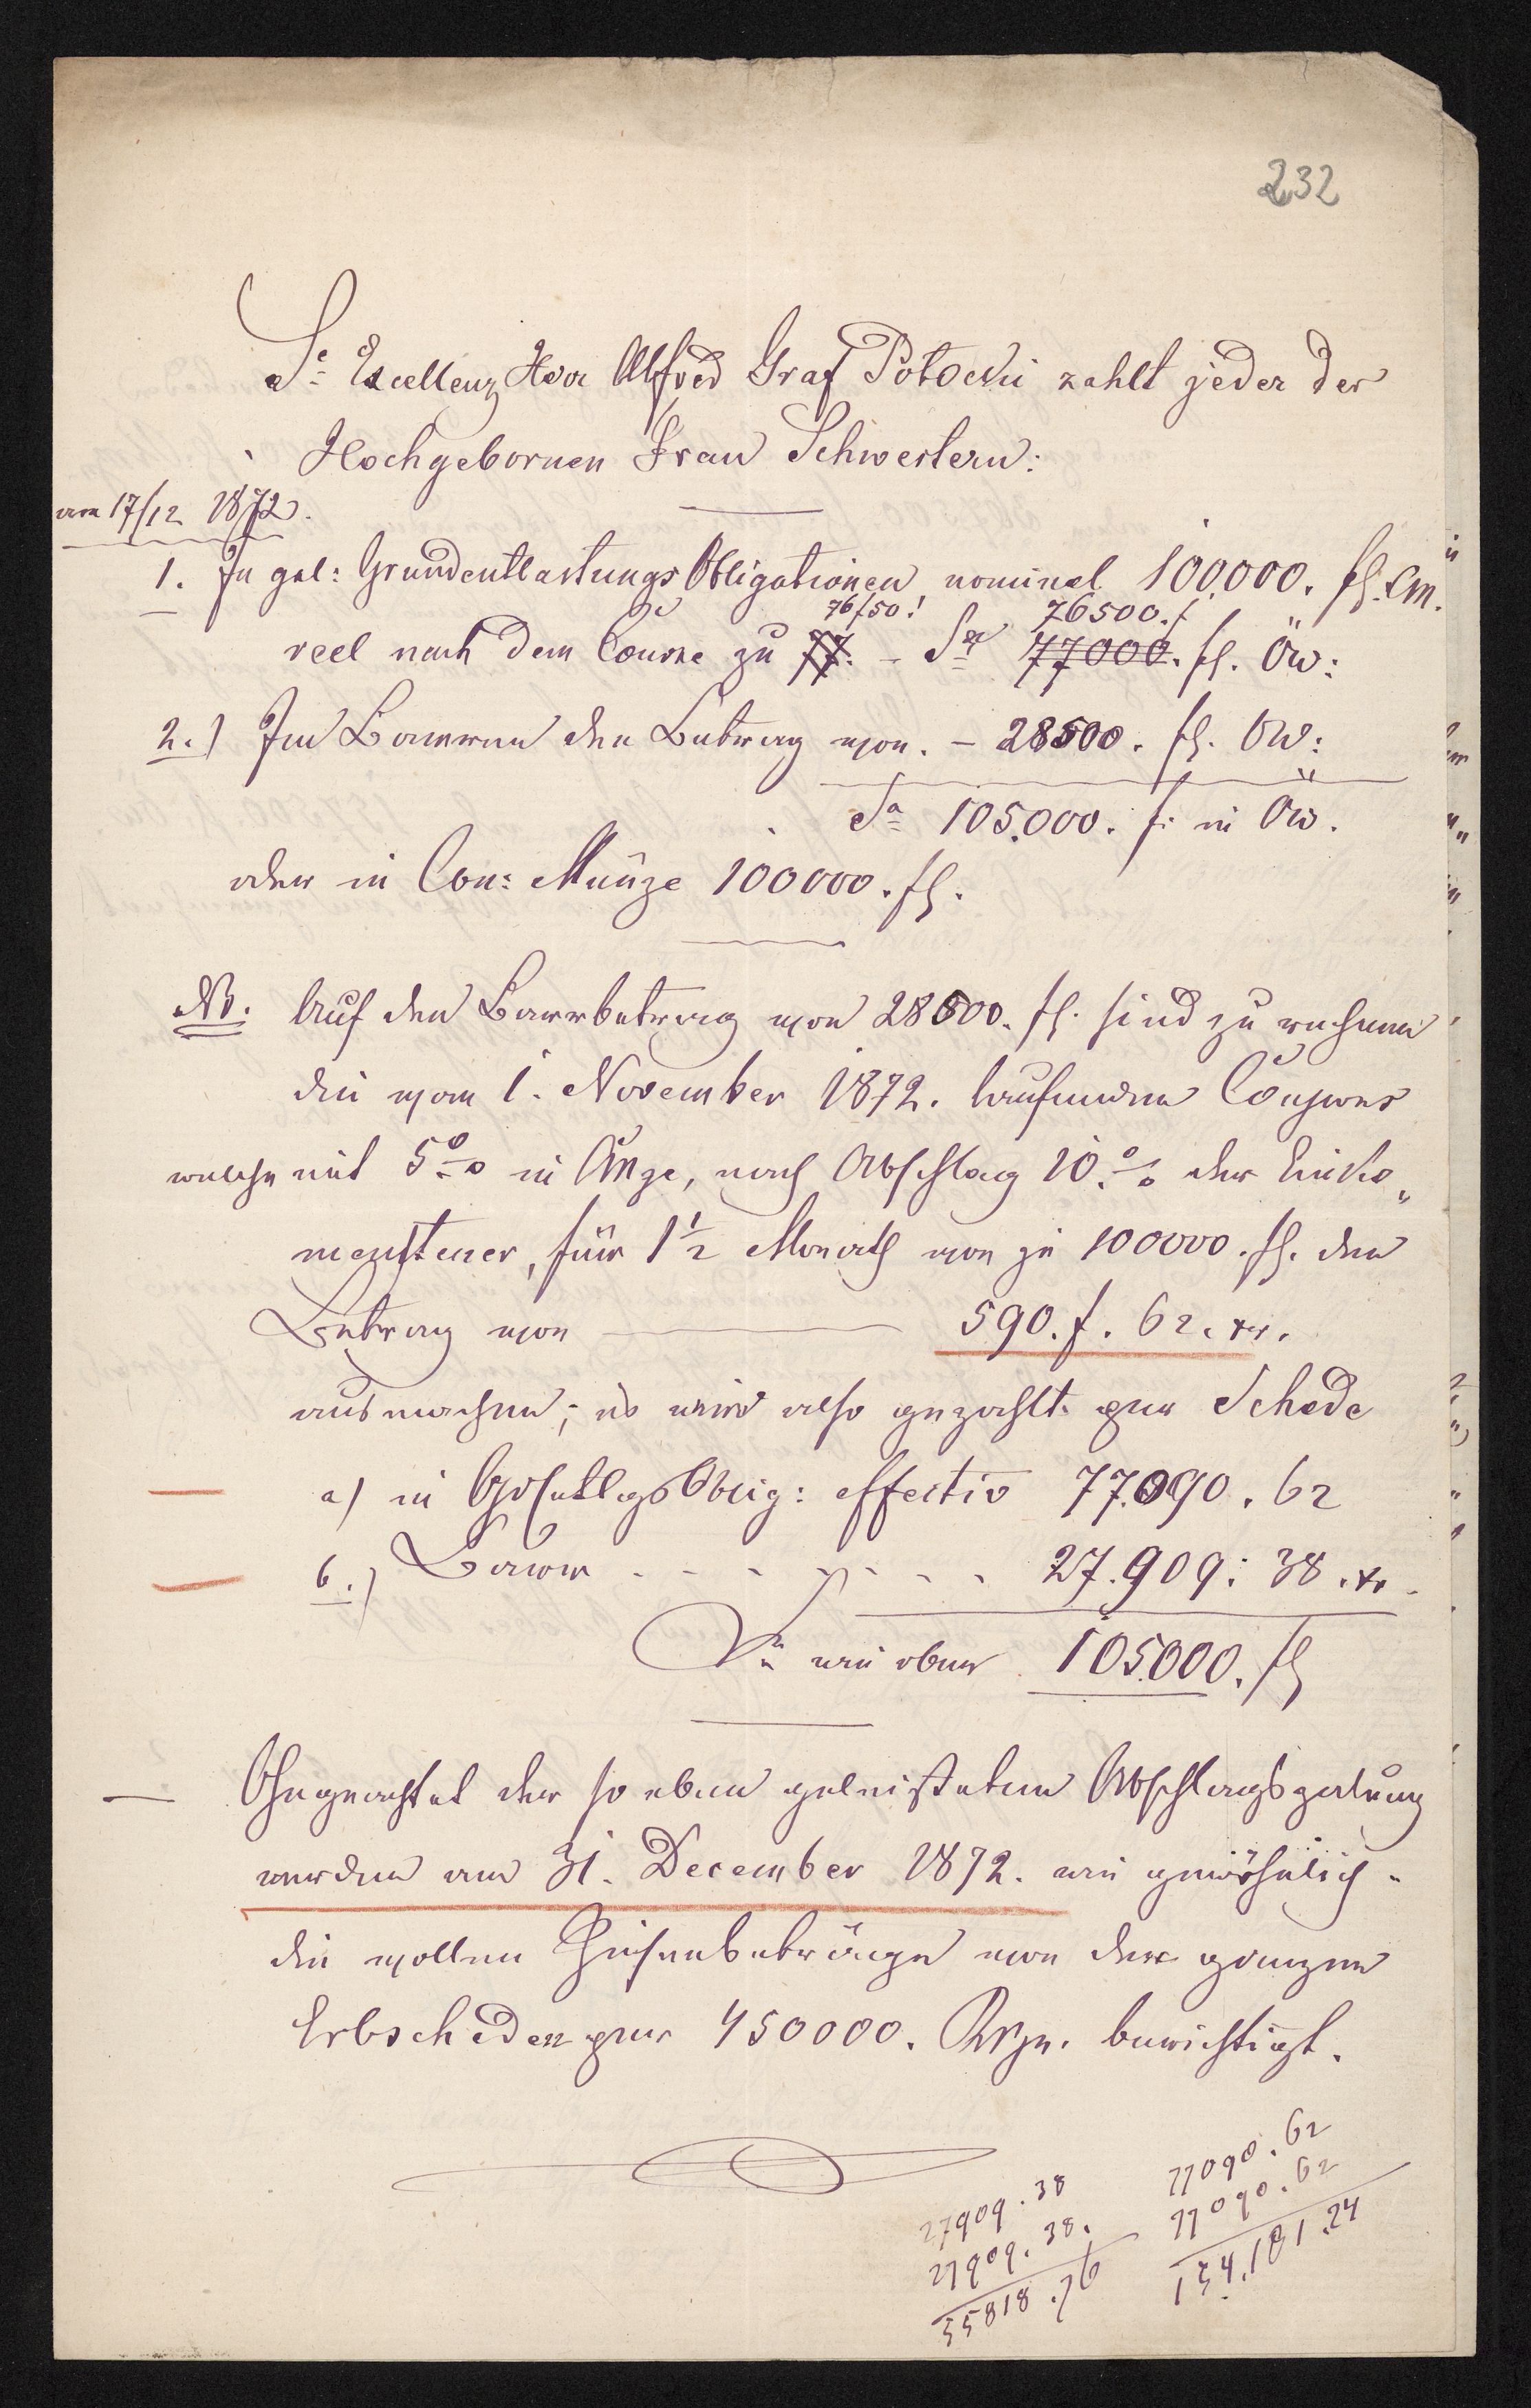 232
Se Excellenz Herr Alfred Graf Potocki zahlt jeder der
Hochgebornen Frau Schwestern:
am 17/12 1872.
1. In gal: Grundentlastungs Obligationen nominal 100,000. fl. CM.
76/50! 76500.f
reel nach dem Course zu 77. – Sa 77000. fl. ÖW:
2.) Im Baarem den Betrag von. – 28500. fl. ÖW:
Sa 105,000. f. in ÖW.
oder in Con: Münze 100000. fl.
NB. Auf den Baarbetrag von 28500. fl. sind zu rechnen
die vom 1. November 1872. laufenden Coupons
welche mit 5% in CMze, nach Abschlag 10.% der Einko„
mensteuer, für 1½ Monath von je 100000. fl. den
Betrag von 590. f. 62. xr.
ausmachen; es wird also gezahlt per Schede
a) in Oblig: effectiv 77.090. 62
b.) Baar - - - - - - - 27.909: 38. xr.
Sa wie oben 105000. fl
Ohngeachtet der so eben geleisteten Abschlagszalung
werden am 31. December 1872. wie gewöhnlich
die vollen Zinsenbeträge von der ganzen
Erbscheden per 450000. berichtigt.
27909. 38
27909. 38.
55818. 76
77090. 62
77090. 62
154,181. 24